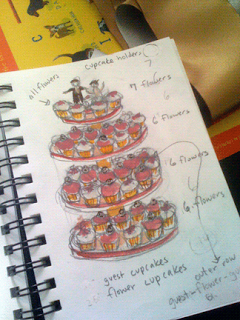 cupcake holders
?
all flowers
7 flowers
6 flowers
6 flowers
6 flowers
guest cupcakes
flower cupcakes
outer row
guest-flower-g